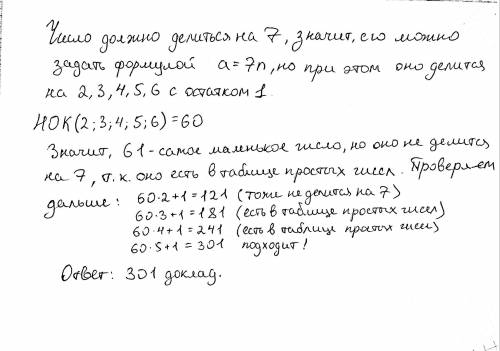 Число должно делиться на 7, значит, его можно
задать формулой a=7n, но при этом оно делится
на 2,3,4,5,6 с остатком 1.
НОК(2;3;4;5;6)=60
Значит, 61-самое маленькое число, но оно не делится
на 7, т.к. оно есть в таблице простых чисел. Проверяем
дальше: 60·2+1=121 (тоже не делится на 7)
60·3+1=181 (есть в таблице простых чисел)
60·4+1=241 (есть в таблице простых чисел)
60·5+1=301 подходит!
Ответ: 301 доклад.